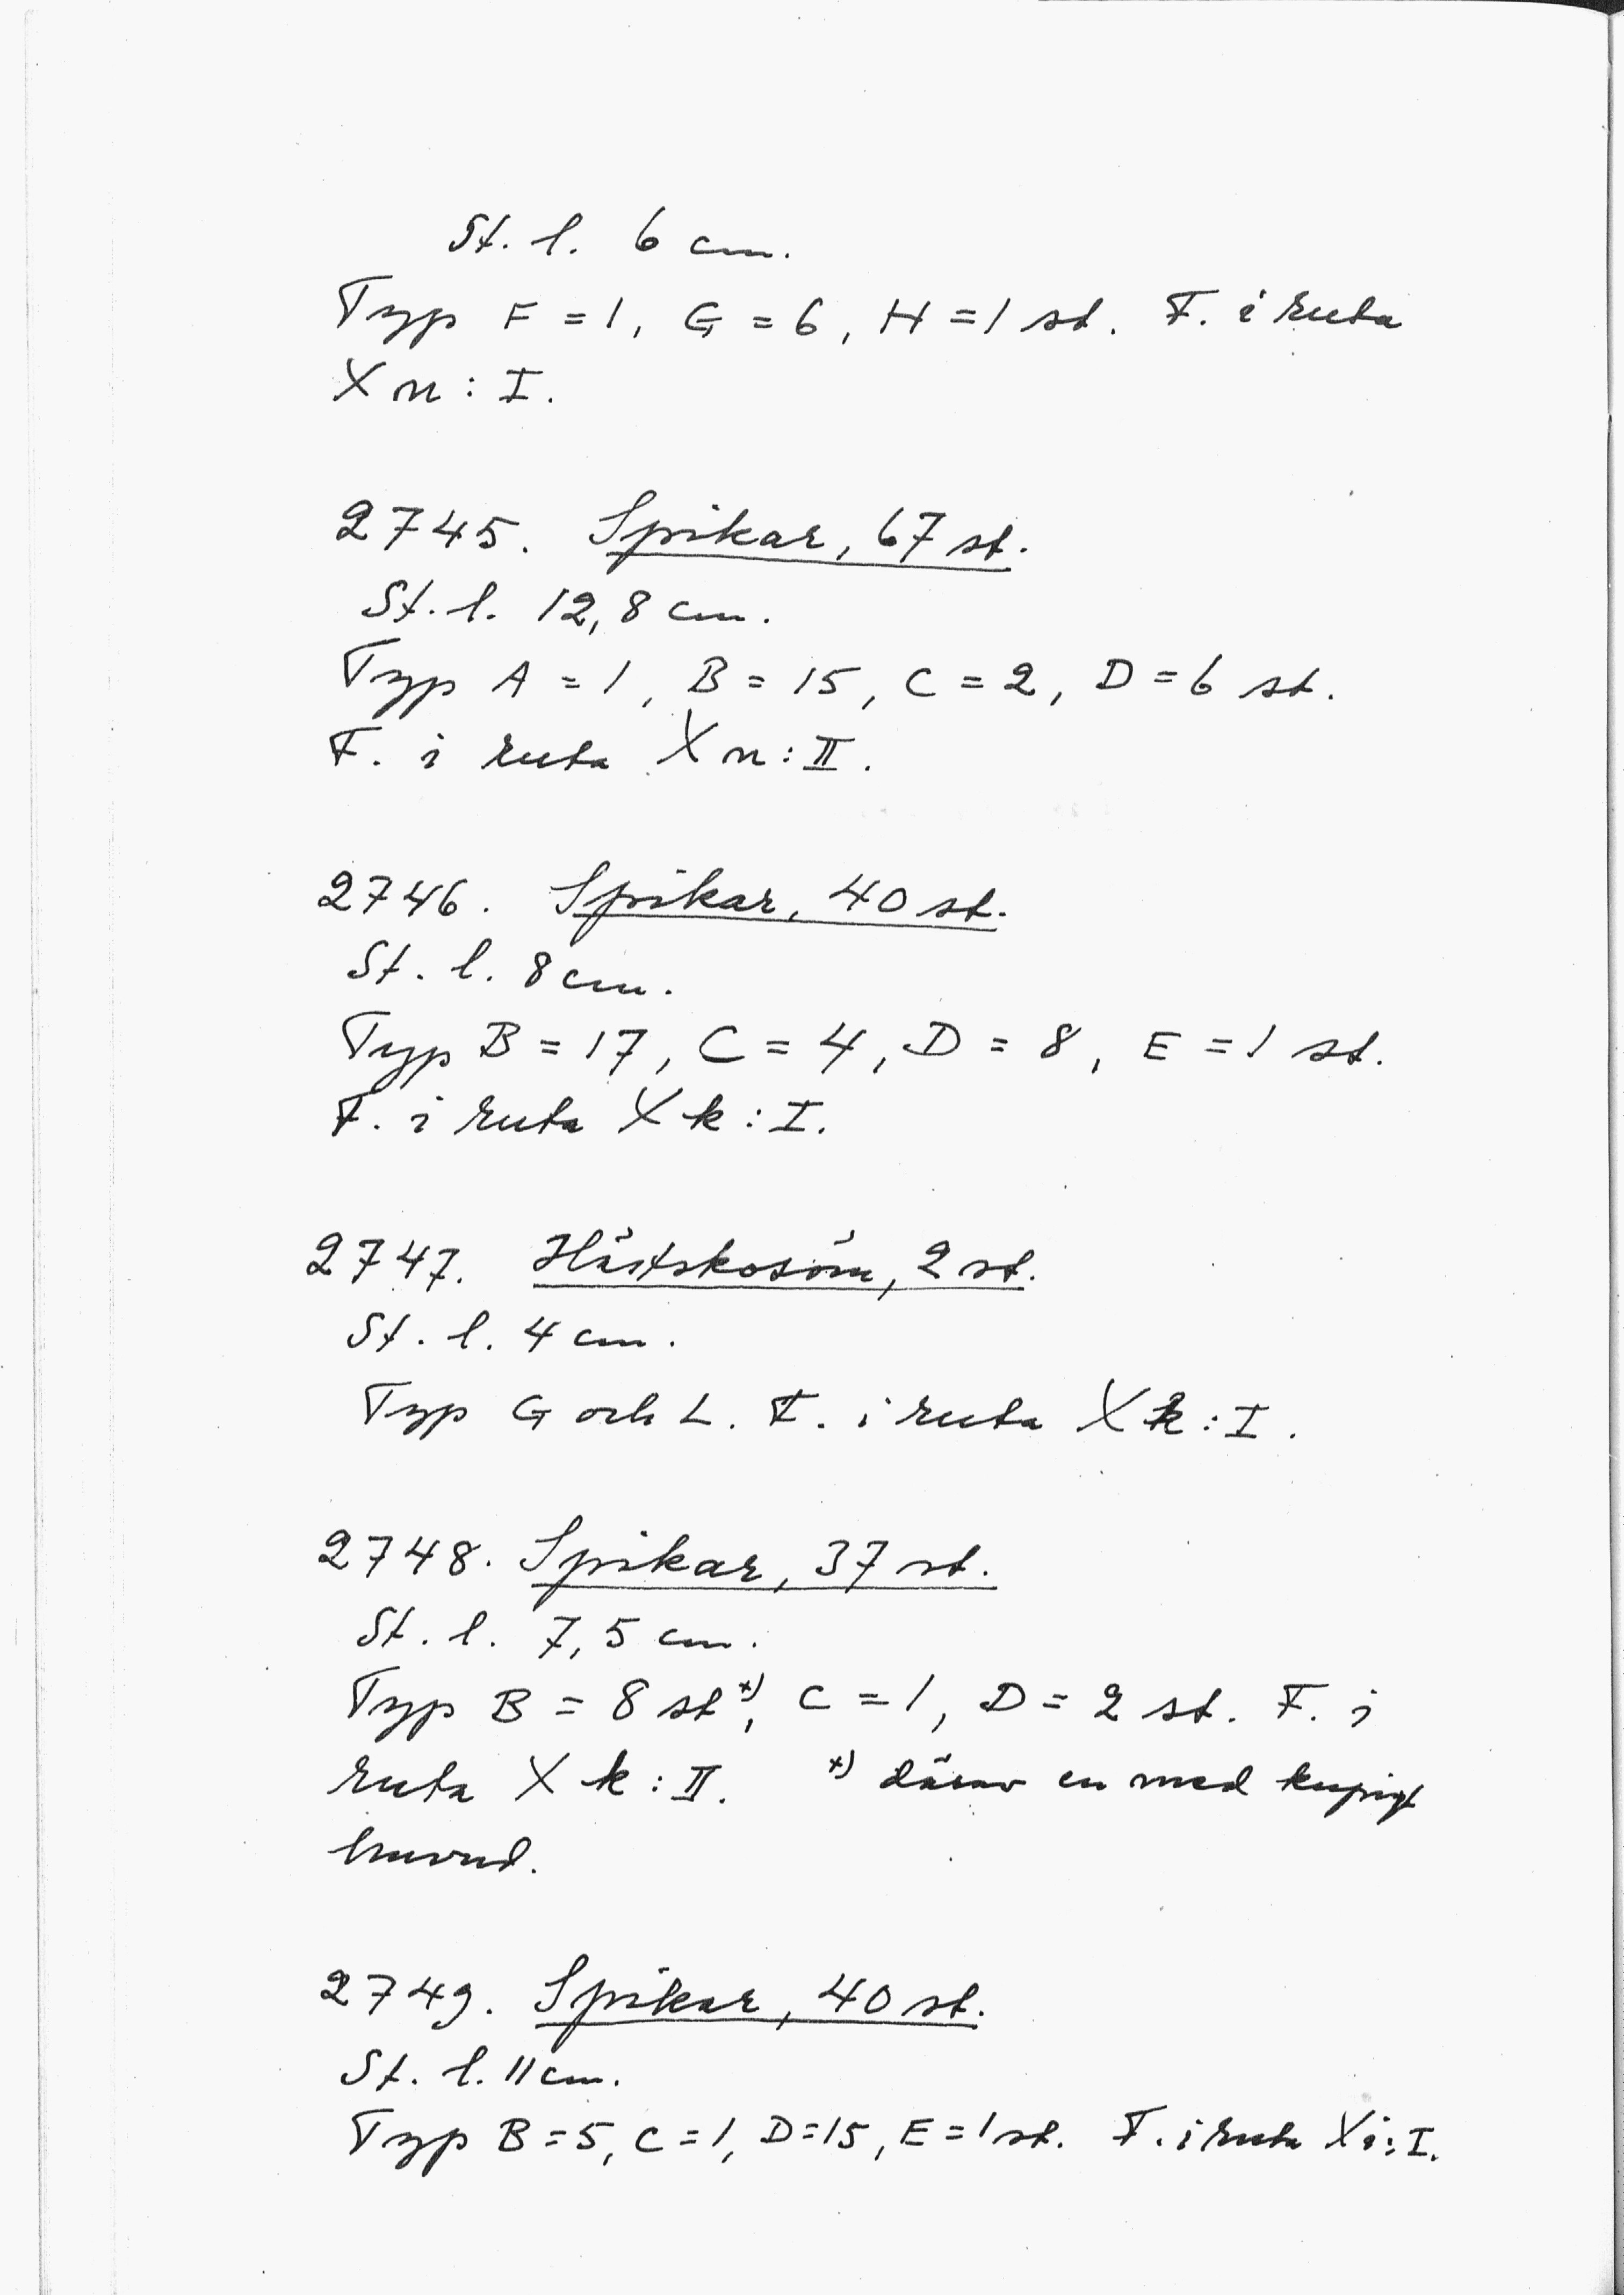 St. l. 6 cm.
Typ F = 1, G = 6, H = 1 st. F. i ruta
X n : I.
2745. Spikar, 67 st.
St. l. 12,8 cm.
Typ A = 1, B = 15, C = 2, D = 6 st.
F. i ruta X n : II.
2746. Spikar, 40 st.
St. l. 8 cm.
Typ B = 17, C = 4, D = 8, E = 1 st.
F. i ruta X k : I.
2747. Hästskosöm, 2 st.
St. l. 4 cm.
Typ G och L. F. i ruta X k : I.
2748. Spikar, 37 st.
St. l. 7,5 cm.
Typ B = 8 st x), C = 1, D = 2 st. F. i
ruta X k : II. x) därav en med kupigt
huvud.
2749. Spikar, 40 st.
St. l. 11 cm.
Typ B = 5, C = 1, D = 15, E = 1 st. F. i ruta X i : I.